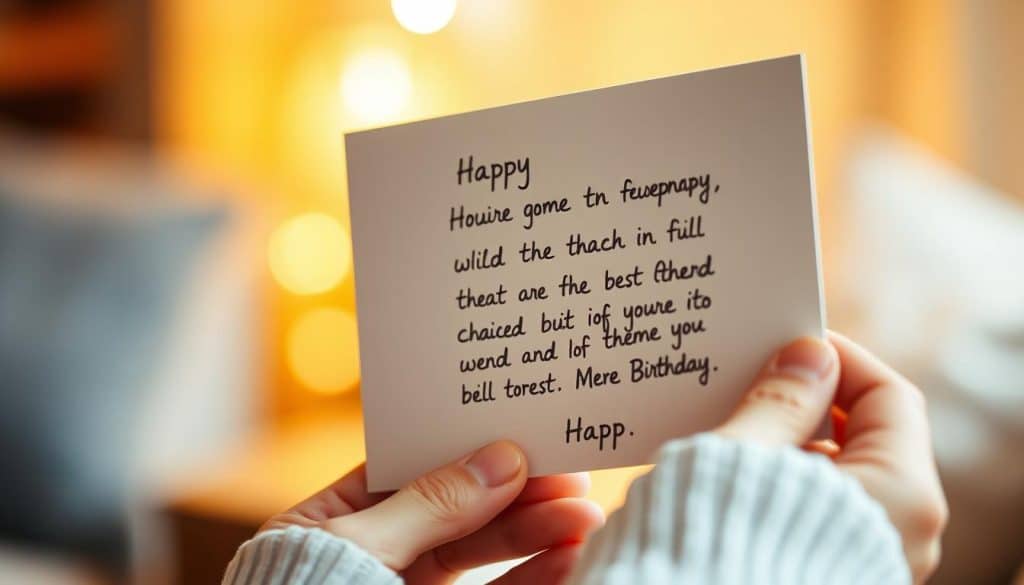 Happy
Houire gome tn feusepnapy,
wlild the thach in full
theat are fhe best
chaiced but iof youre ito
wend and lof theme you
bell torest. Mere Birthday.
Happ.